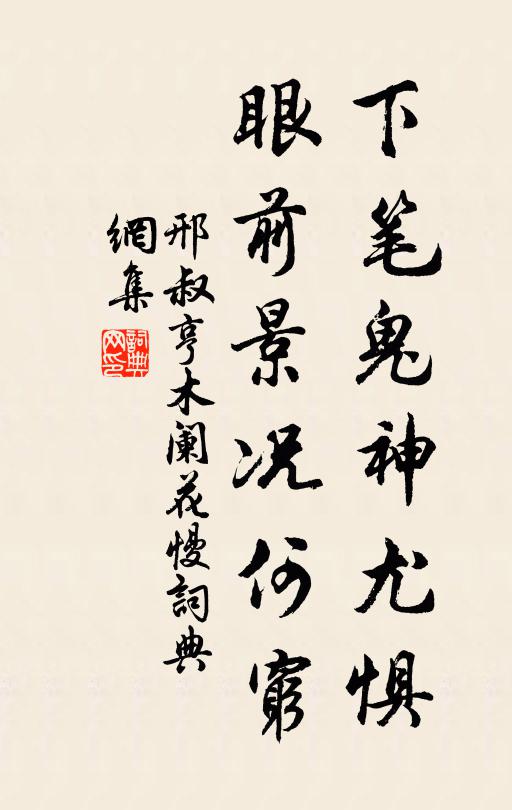 下笔鬼神尤惧
眼前景况何窮
邢叔亨木阑花慢詞典
網集
詞典
网印